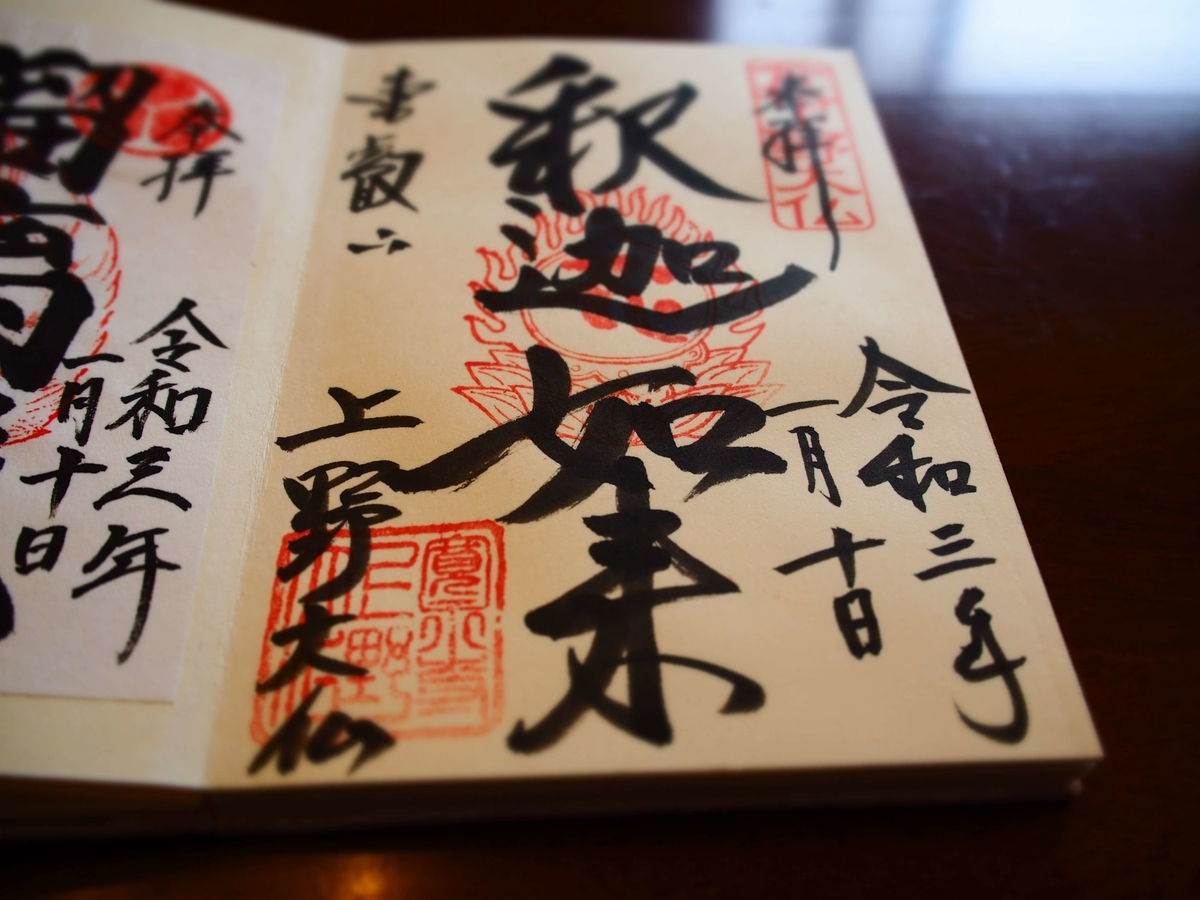 奉拝
令和三年
一月十日
釈迦如来
東叡山
上野大仏
寛永寺
上野
奉拝
令和三年
一月十日